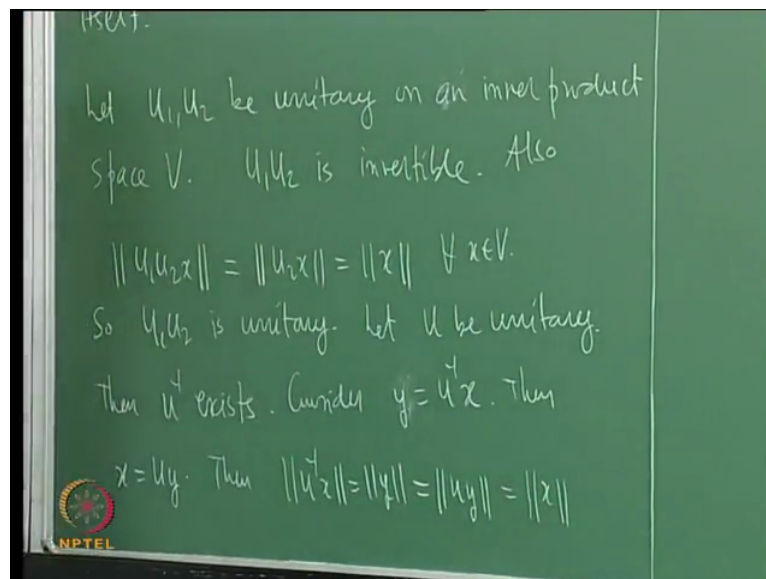 itself.
Let U₁,U₂ be unitary on an inner product
space V. U₁U₂ is invertible. Also
||U₁U₂x|| = ||U₂x|| = ||x|| ∀ x∈V.
So U₁U₂ is unitary. Let U be unitary.
Then U⁻¹ exists. Consider y = U⁻¹x. Then
x = Uy. Then ||U⁻¹x|| = ||y|| = ||Uy|| = ||x||
NPTEL